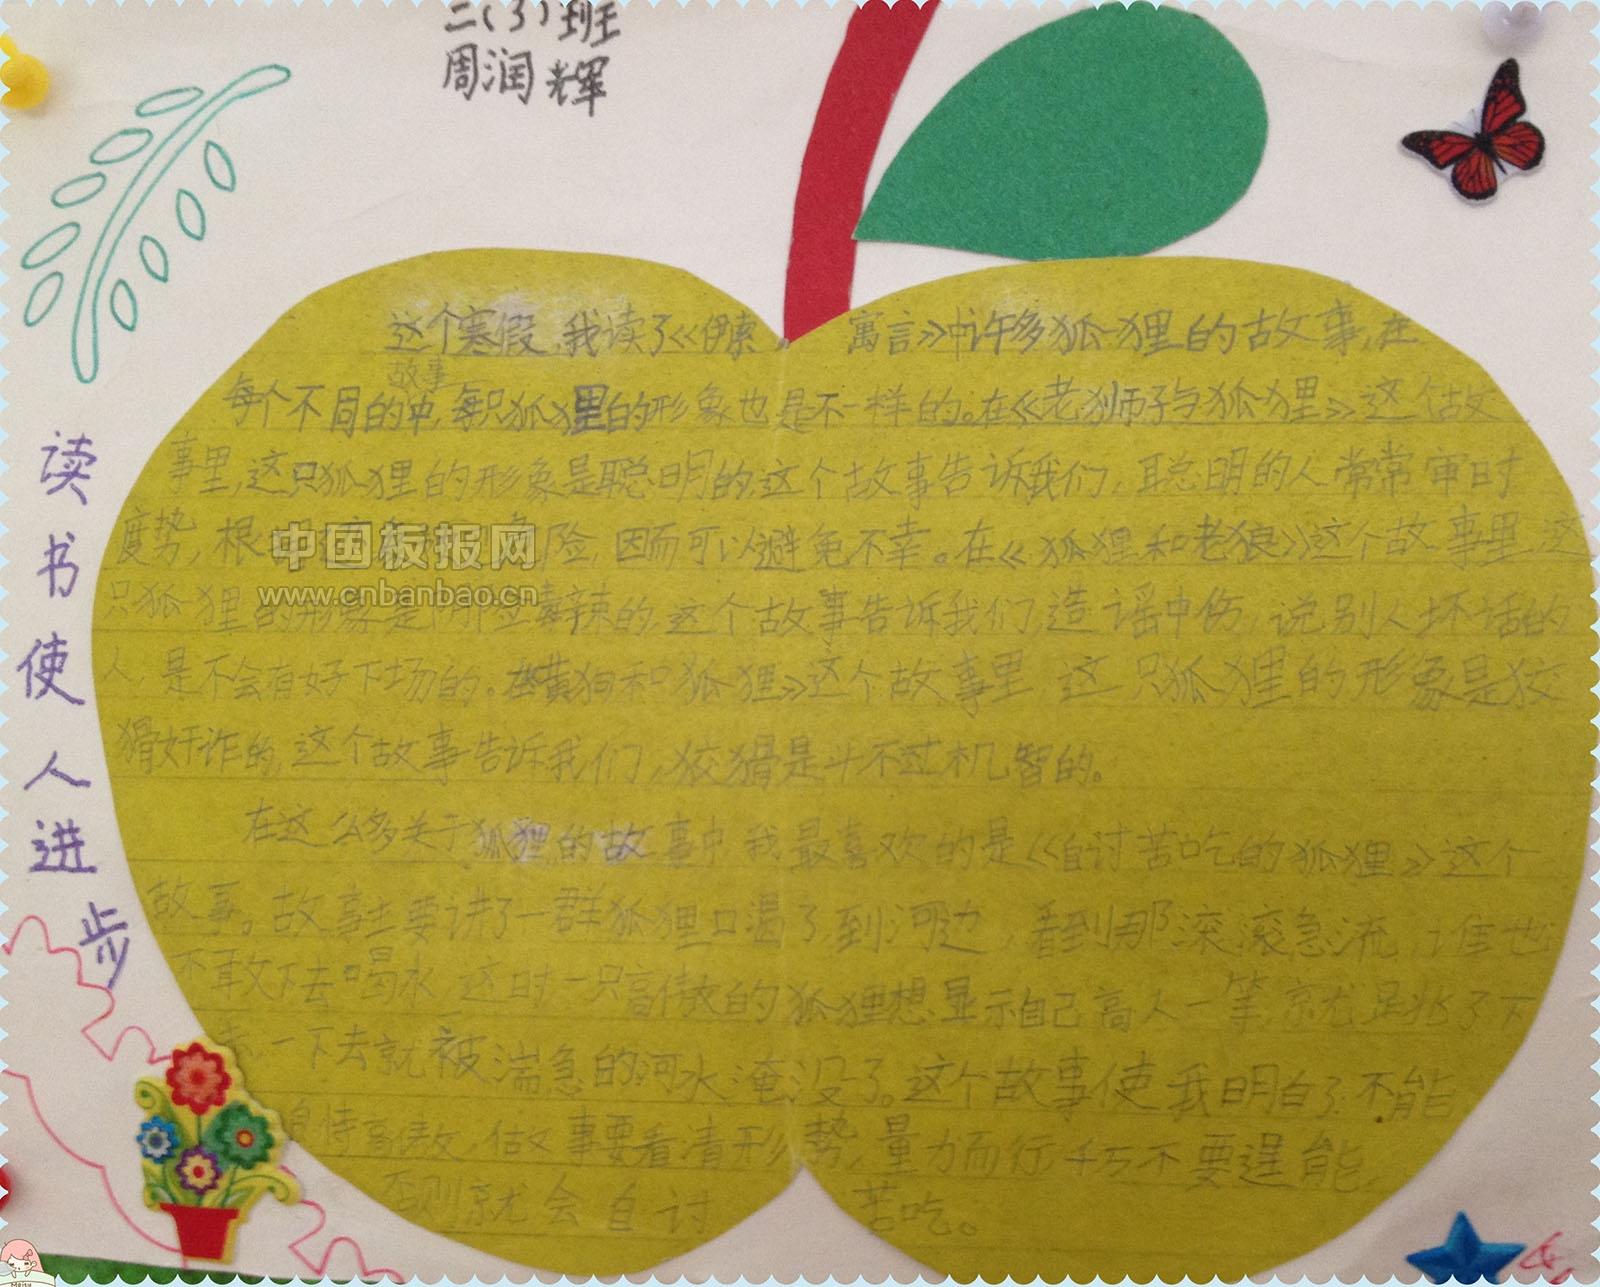 二(3)班
周润辉
读书使人进步
这个寒假,我读了《伊索寓言》中许多狐狸的故事,在
故事
每个不同的中,每只狐狸的形象也是不一样的。在《老狮子与狐狸》这个故
事里,这只狐狸的形象是聪明的,这个故事告诉我们,聪明的人常常审时
度势,根 险,因而可以避免不幸。在《狐狸和老狼》这个故事里,这
只狐狸的形象是阴险毒辣的,这个故事告诉我们,造谣中伤,说别人坏话的
人,是不会有好下场的。在《黄狗和狐狸》这个故事里,这只狐狸的形象是狡
猾奸诈的,这个故事告诉我们,狡猾是斗不过机智的。
在这么多关于狐狸的故事中,我最喜欢的是《自讨苦吃的狐狸》这个
故事。故事主要讲了一群狐狸口渴了到河边,看到那滚滚急流,谁也
不敢下去喝水,这时一只高傲的狐狸想显示自己高人一筹,就是跳了下
去,一下去就被湍急的河水淹没了。这个故事使我明白了:不能
自恃高傲,做事要看清形势,量力而行,千万不要逞能,
否则就会自讨苦吃。
中国板报网
www.cnbanbao.cn
Meitu